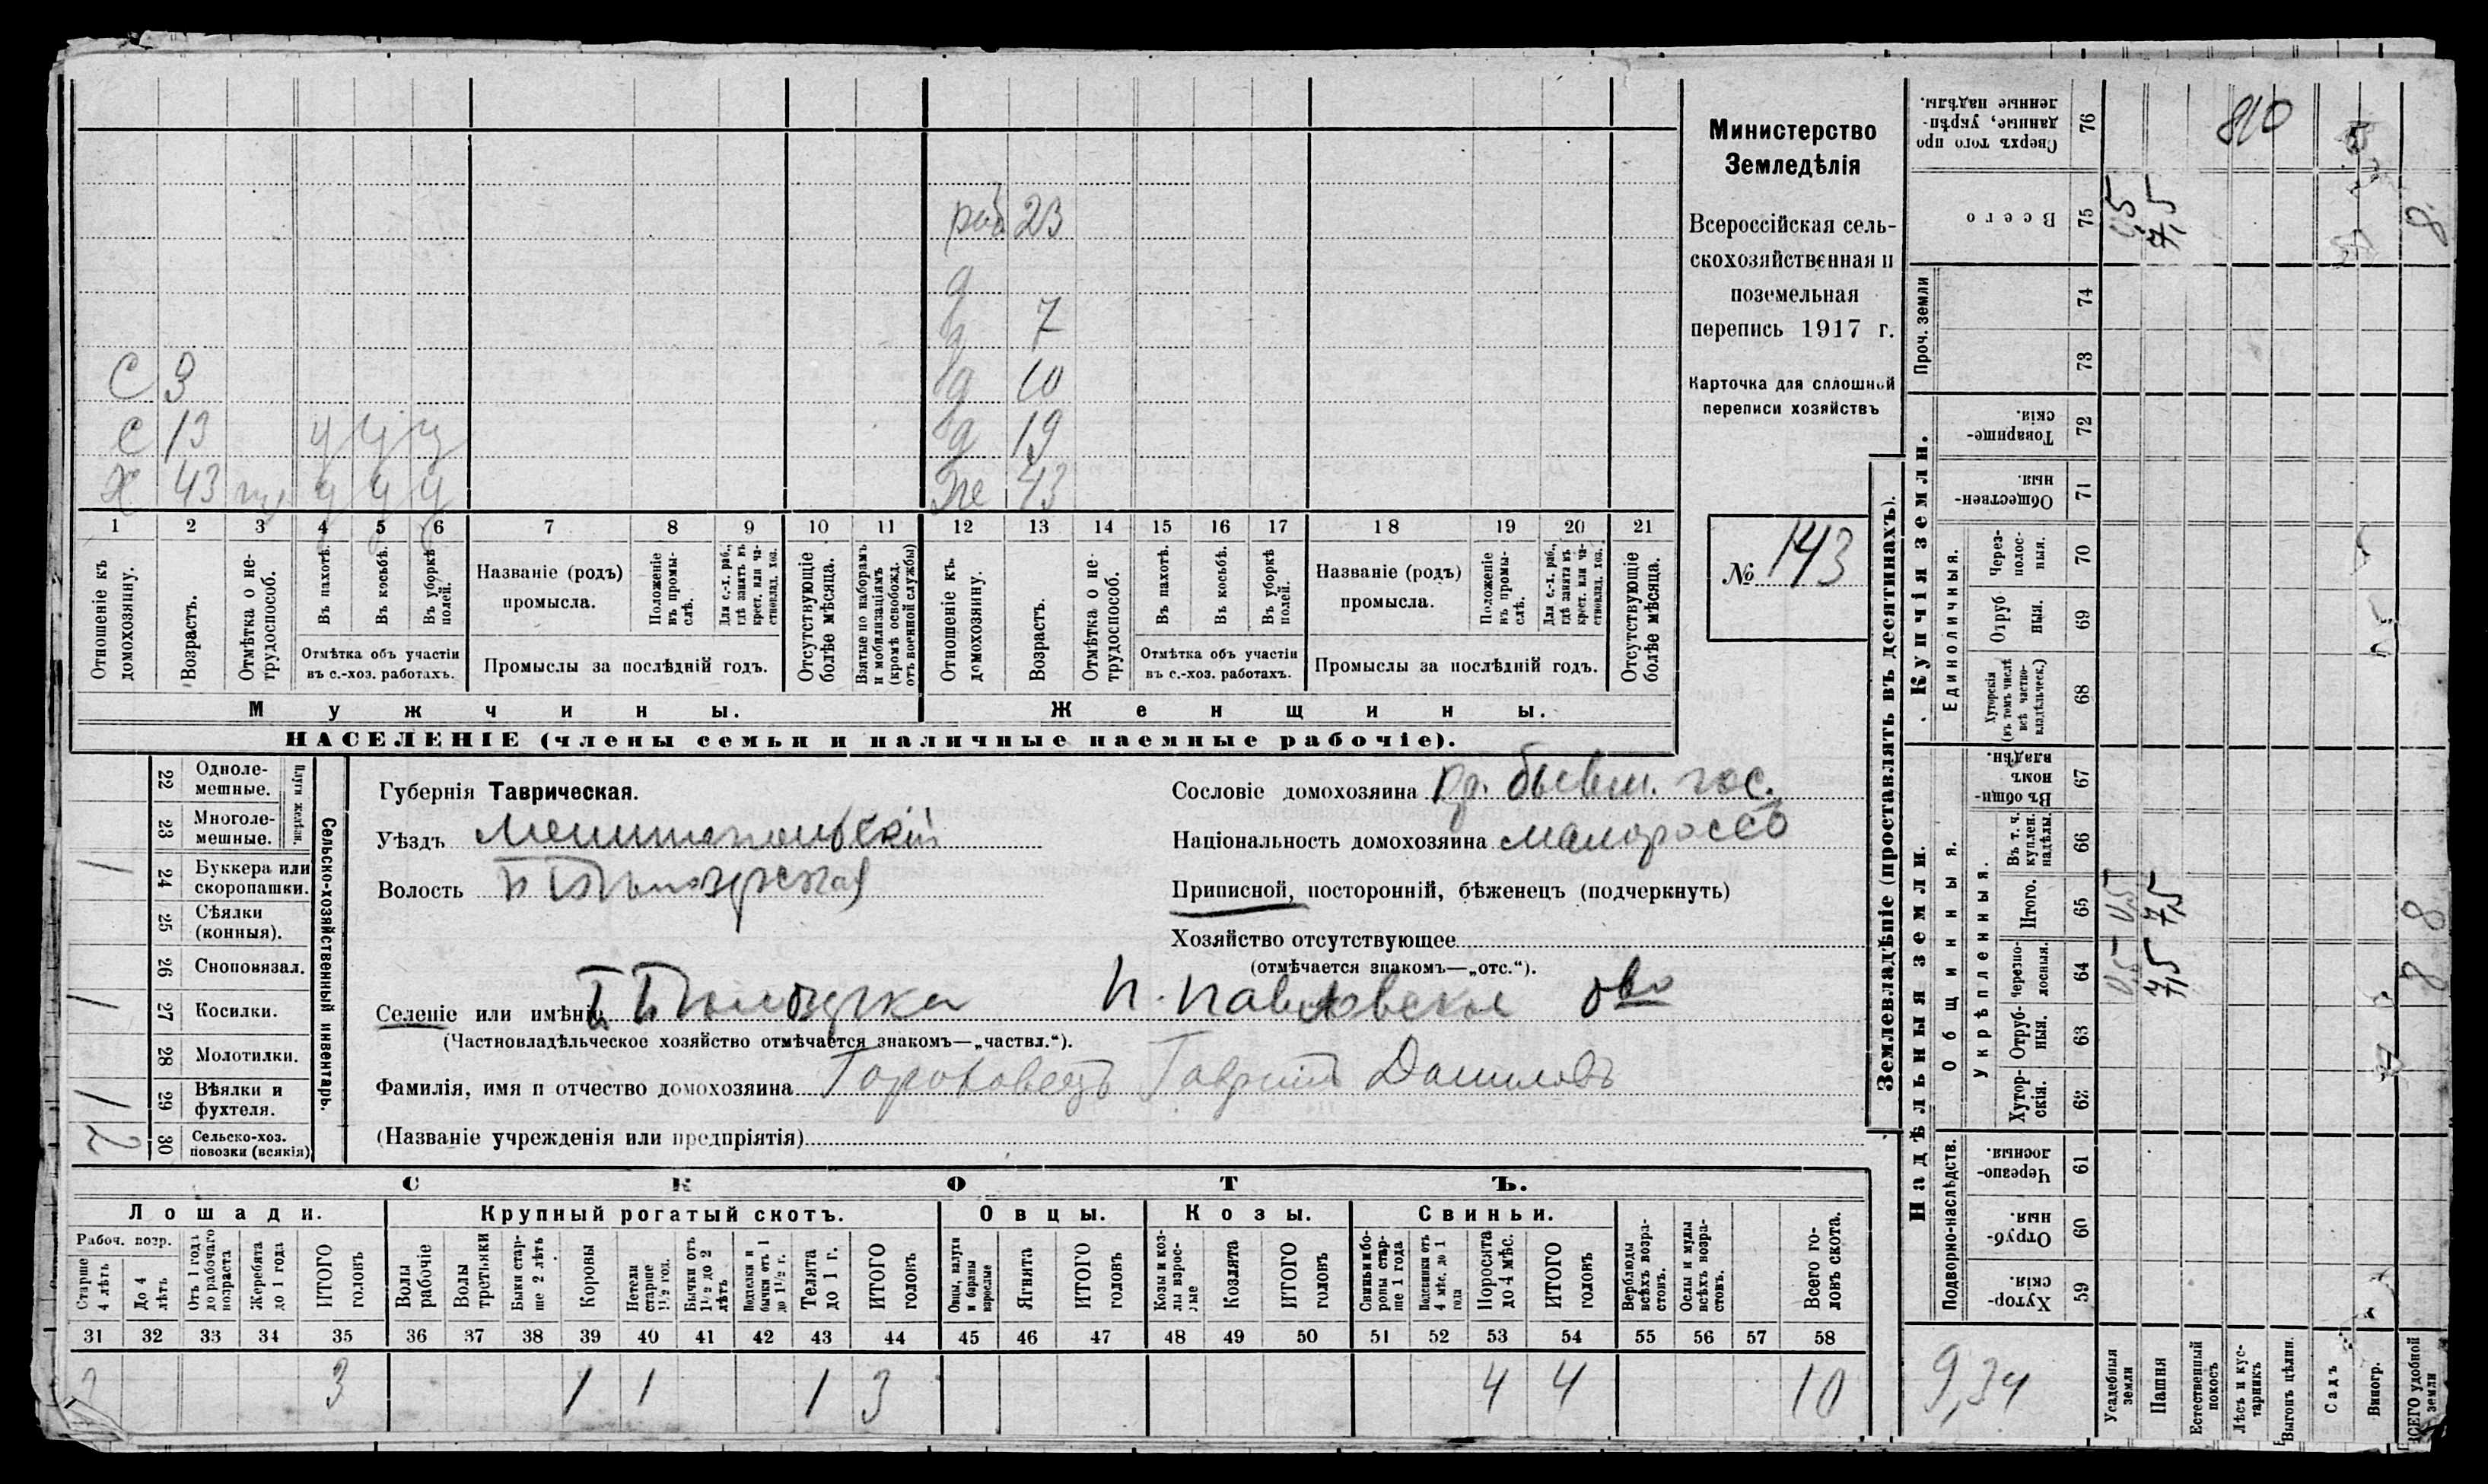 Министерство
Земледѣлія
Всероссійская сель-
скохозяйственная и
поземельная
перепись 1917 г.
Карточка для сплошной
переписи хозяйствъ
№ 143
раб 23
д
д 7
С 3 д 10
С 13 у у у д 19
Х 43 у у у же 43
1 2 3 4 5 6 7 8 9 10 11 12 13 14 15 16 17 18 19 20 21
Отношеніе къ домохозяину.
Возрастъ.
Отмѣтка о не-трудоспособ.
Въ пахотѣ.
Въ косьбѣ.
Въ уборкѣ полей.
Отмѣтка объ участіи въ с.-хоз. работахъ.
Названіе (родъ) промысла.
Положеніе въ промы-слѣ.
Для с.-х. раб., гдѣ занятъ въ крест. или ча-стновлад. хоз.
Промыслы за послѣдній годъ.
Отсутствующіе болѣе мѣсяца.
Взятые по наборамъ и мобилизаціямъ (кромѣ освобожд. отъ военной службы)
Отношеніе къ домохозяину.
Возрастъ.
Отмѣтка о не-трудоспособ.
Въ пахотѣ.
Въ косьбѣ.
Въ уборкѣ полей.
Отмѣтка объ участіи въ с.-хоз. работахъ.
Названіе (родъ) промысла.
Положеніе въ промы-слѣ.
Для с.-х. раб., гдѣ занята въ крест. или ча-стновлад. хоз.
Промыслы за послѣдній годъ.
Отсутствующіе болѣе мѣсяца.
Мужчины. Женщины.
НАСЕЛЕНІЕ (члены семьи и наличные наемные рабочіе).
Сельско-хозяйственный инвентарь.
Плуги желѣзн.
22 Одноле-мешные.
23 Многоле-мешные.
1 24 Буккера или скоропашки.
25 Сѣялки (конныя).
26 Сноповязал.
1 27 Косилки.
28 Молотилки.
1 29 Вѣялки и фухтеля.
2 30 Сельско-хоз. повозки (всякія)
Губернія Таврическая.
Уѣздъ Мелитопольскій
Волость Б Бѣлозерская
Сословіе домохозяина кр. бывш. гос.
Національность домохозяина малороссъ
Приписной, посторонній, бѣженец (подчеркнуть)
Хозяйство отсутствующее
(отмѣчается знакомъ—„отс.“).
Селеніе или имѣніе Б Бѣлозерка Н. Павловское о-во
(Частновладѣльческое хозяйство отмѣчается знакомъ—„частвл.“).
Фамилія, имя и отчество домохозяина Гороховецъ Гавріилъ Даниловъ
(Названіе учрежденія или предпріятія)
СКОТЪ.
Лошади. Крупный рогатый скотъ. Овцы. Козы. Свиньи.
Рабоч. возр.
Старше 4 лѣтъ
До 4 лѣтъ
Отъ 1 года до рабочаго возраста
Жеребята до 1 года
ИТОГО головъ
Волы рабочіе
Волы третьяки
Быки стар-ше 2 лѣтъ
Коровы
Нетели старше 1½ год.
Бычки отъ 1½ до 2 лѣтъ
Телята до 1 г.
ИТОГО головъ
Овцы, валухи и бараны взрослые
Ягнята
ИТОГО головъ
Козы и коз-лы взрос-лые
Козлята
ИТОГО головъ
Свиньи и бо-ровы стар-ше 1 года
Подсвинки отъ 4 мѣс. до 1 года
Поросята до 4 мѣс.
ИТОГО головъ
Верблюды всѣхъ возра-стовъ.
Ослы и мулы всѣхъ возра-стовъ.
Всего го-ловъ скота.
31 32 33 34 35 36 37 38 39 40 41 42 43 44 45 46 47 48 49 50 51 52 53 54 55 56 57 58
3 1 1 1 3 4 4 10
Землевладѣніе (проставлять въ десятинахъ).
Надѣльныя земли. Купчія земли.
Проч. земли
Подворно-наслѣдств.
Общинныя.
Укрѣпленныя.
Единоличныя.
Сверхъ того про данные, укрѣп-ленные надѣлы. 76 810
Всего 75 0,5 7,5 8
74
73
Товарище-скія. 72
Обществен-ныя. 71
Через-полос-ныя. 70
Отруб ныя. 69
Хуторскія (въ томъ числѣ всѣ частно-владѣльческ.) 68
Въ общин-номъ владѣн. 67
Въ т. ч. куплен. надѣлы. 66
Итого. 65 0,5 7,5 8
Черезпо-лосныя. 64 0,5 7,5 8
Отруб-ныя. 63
Хутор-скія. 62
Черезпо-лосныя. 61
Отруб-ныя. 60
Хутор-скія. 59
9,34
Усадебныя земли
Пашня
Естественный покосъ
Лѣсъ и кус-тарникъ
Выгонъ цѣлин.
Садъ
Виногр.
ВСЕГО удобной земли